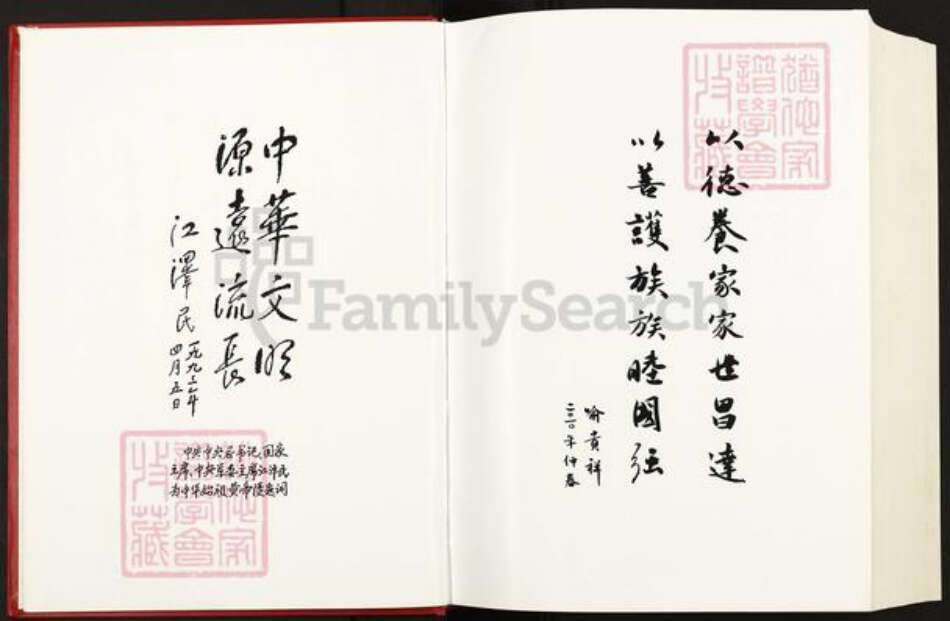 中華文明
源遠流長
江澤民
一九九三年
四月五日
中共中央总书记、国家
主席、中央军委主席江泽民
为中华始祖黄帝陵题词
以德養家家世昌達
以善護族族睦國強
喻貴祥
二〇一〇年仲春
譜學會
收藏
FamilySearch